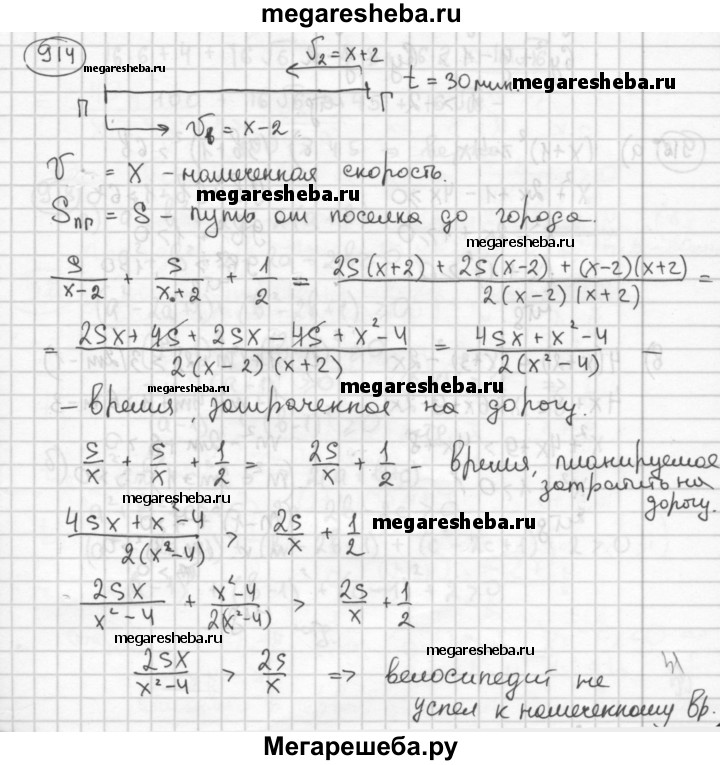 megaresheba.ru
914
megaresheba.ru
V₂ = x+2
t = 30 мин.
megaresheba.ru
П
Г
V₁ = x-2
V = x - намеченная скорость.
megaresheba.ru
Sпр = S - путь от поселка до города.
megaresheba.ru
S/(x-2) + S/(x+2) + 1/2 = (2S(x+2) + 2S(x-2) + (x-2)(x+2))/(2(x-2)(x+2)) =
= (2Sx + 4S + 2Sx - 4S + x²-4)/(2(x-2)(x+2)) = (4Sx + x²-4)/(2(x²-4)) -
megaresheba.ru
megaresheba.ru
- время, затраченное на дорогу.
S/x + S/x + 1/2 = 2S/x + 1/2 - время, планируемое
затратить на
дорогу.
megaresheba.ru
(4Sx + x²-4)/(2(x²-4)) > 2S/x + 1/2
megaresheba.ru
2Sx/(x²-4) + (x²-4)/(2(x²-4)) > 2S/x + 1/2
megaresheba.ru
megaresheba.ru
2Sx/(x²-4) > 2S/x => велосипедит не
успел к намеченному вр.
Мегарешеба.ру